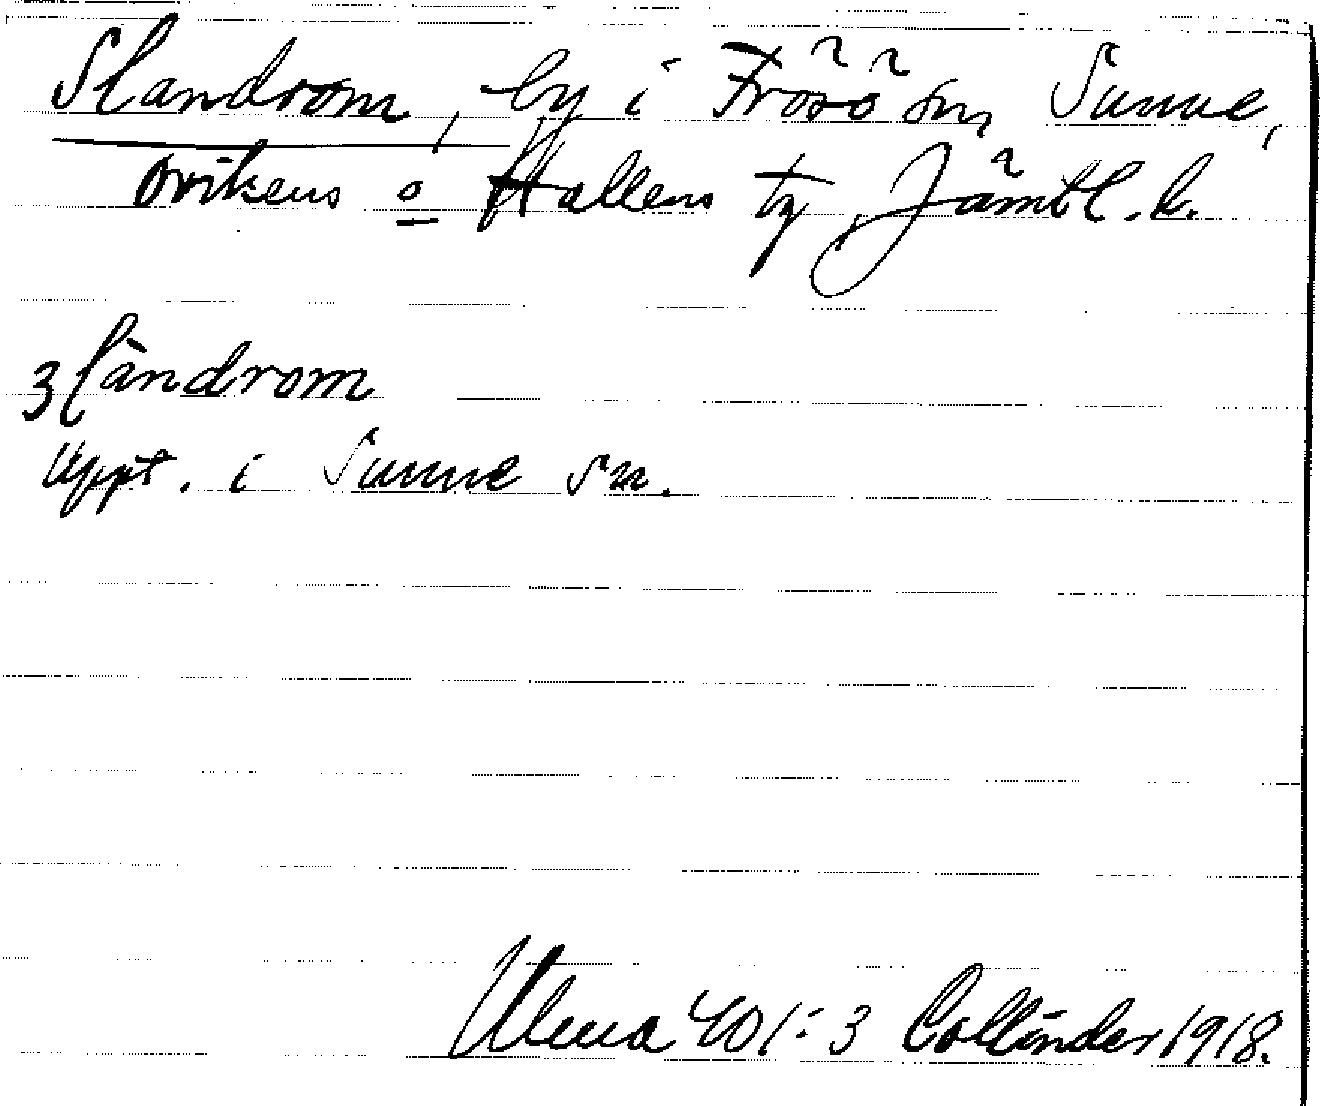 Slandrom, by i Frösö sn, Sunne,
Ovikens o Hallens tg, Jämtl. l.
ʒlàndrom
Uppt. i Sunne sn.
Ulma 401:3 Collinder 1918.